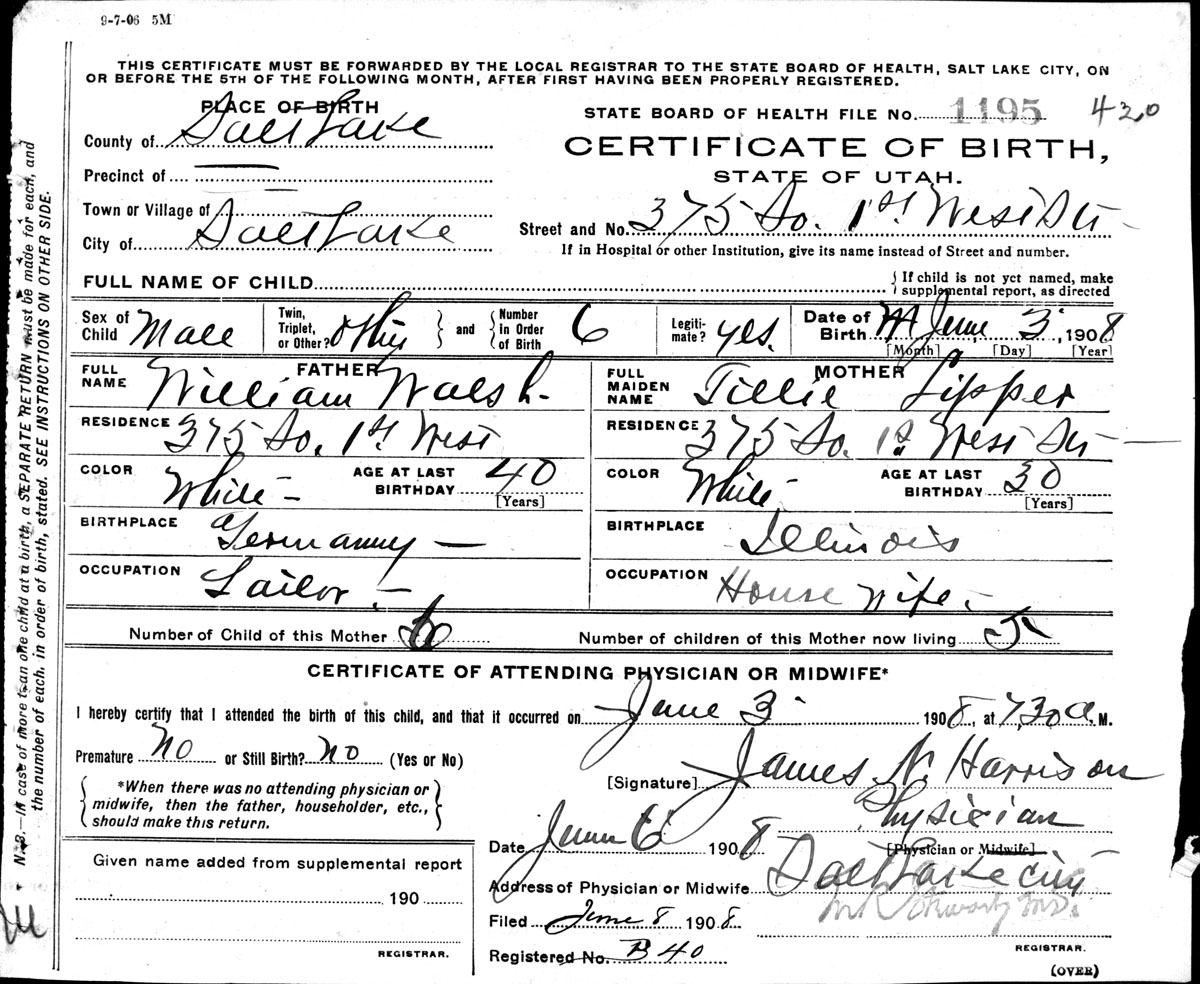 9-7-06 5M
THIS CERTIFICATE MUST BE FORWARDED BY THE LOCAL REGISTRAR TO THE STATE BOARD OF HEALTH, SALT LAKE CITY, ON
OR BEFORE THE 5TH OF THE FOLLOWING MONTH, AFTER FIRST HAVING BEEN PROPERLY REGISTERED.
PLACE OF BIRTH
STATE BOARD OF HEALTH FILE No. 1195 420
County of Salt Lake
CERTIFICATE OF BIRTH,
Precinct of
STATE OF UTAH.
Town or Village of
Street and No. 375 So. 1st West St
City of Salt Lake
If in Hospital or other Institution, give its name instead of Street and number.
FULL NAME OF CHILD
{ If child is not yet named, make
supplemental report, as directed
Sex of Child Male
Twin, Triplet, or Other?
} and { Number in Order of Birth 6
Legiti-mate? yes.
Date of Birth June 3, 1908
[Month] [Day] [Year]
FATHER
FULL NAME William Walsh.
MOTHER
FULL MAIDEN NAME Tillie Lipper
RESIDENCE 375 So. 1st West
RESIDENCE 375 So. 1st West St
COLOR White - AGE AT LAST BIRTHDAY 40
[Years]
COLOR White AGE AT LAST BIRTHDAY 30
[Years]
BIRTHPLACE Germanny
BIRTHPLACE Illinois
OCCUPATION Tailor.
OCCUPATION House wife.
Number of Child of this Mother 6
Number of children of this Mother now living 5
CERTIFICATE OF ATTENDING PHYSICIAN OR MIDWIFE*
I hereby certify that I attended the birth of this child, and that it occurred on June 3 1908, at 7,30 a. M.
Premature No or Still Birth? No (Yes or No)
[Signature] James N. Harrison
{ *When there was no attending physician or
midwife, then the father, householder, etc.,
should make this return. }
Physician
[Physician or Midwife]
Date June 6 1908
Given name added from supplemental report
190
Address of Physician or Midwife Salt Lake City
Filed June 8 1908
REGISTRAR.
Registered No. B 40
REGISTRAR.
(OVER)
N. B.—In case of more than one child at a birth, a SEPARATE RETURN must be made for each, and
the number of each, in order of birth, stated. SEE INSTRUCTIONS ON OTHER SIDE.